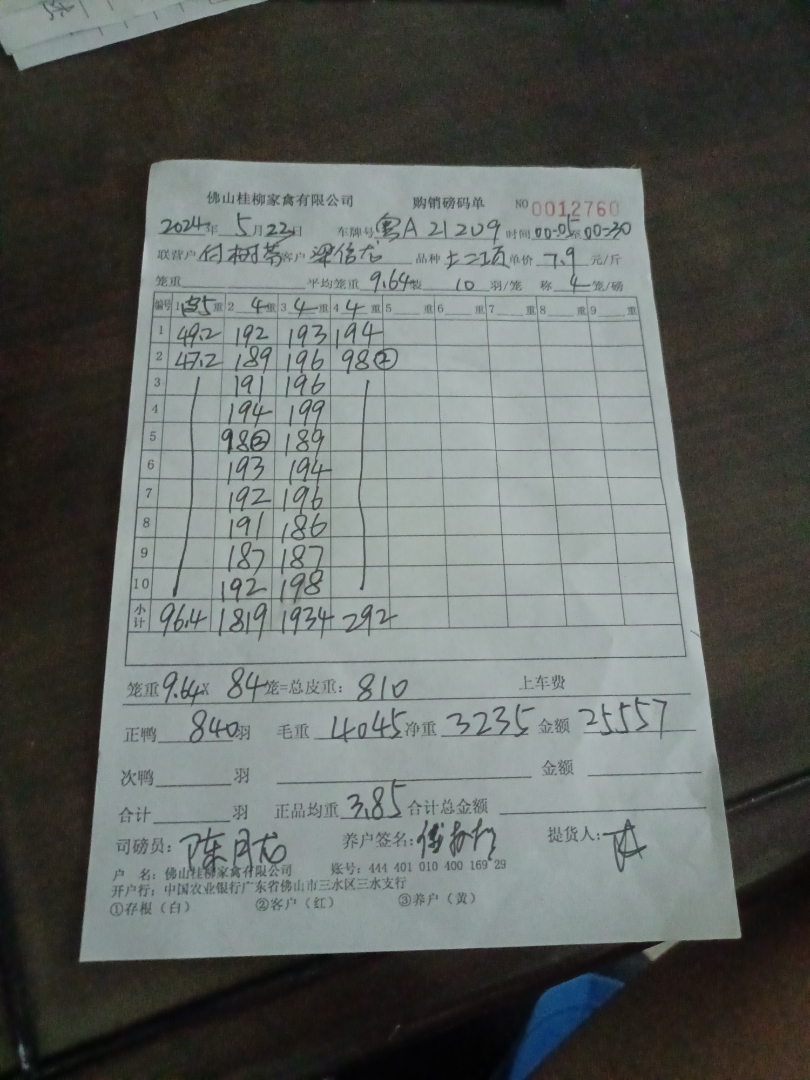 佛山桂柳家禽有限公司 购销磅码单 NO 0012760
2024年 5月22日 车牌号 粤A 21209 时间 00-05至00-30
联营户 付树 客户 梁信龙 品种 土二项 单价 7.9 元/斤
笼重 平均笼重 9.64 10 羽/笼 称 4 笼/磅
编号 1 5重 2 4重 3 4重 4 4重 5 重 6 重 7 重 8 重 9 重
1 49.2 192 193 194
2 47.2 189 196 98②
3 191 196
4 194 199
5 98② 189
6 193 194
7 192 196
8 191 186
9 187 187
10 192 198
小计 96.4 1819 1934 292
笼重 9.64 X 84 笼=总皮重: 810 上车费
正鸭 840 羽 毛重 4045 净重 3235 金额 25557
次鸭 羽 金额
合计 羽 正品均重 3.85 合计总金额
司磅员: 陈月龙 养户签名: 提货人:
户 名: 佛山桂柳家禽有限公司 账号: 444 401 010 400 169 29
开户行: 中国农业银行广东省佛山市三水区三水支行
①存根(白) ②客户(红) ③养户(黄)